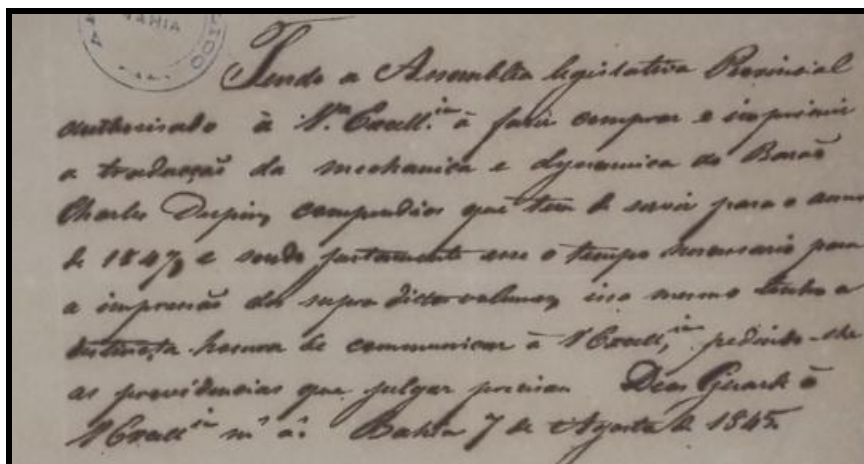 BAHIA
Tendo a Assemblea legislativa Provincial
authorisado à V.ª Excell.ia à fazer comprar e imprimir
a traducção da mechanica e dynamica do Barão
Charles Dupin, compendios que tem de servir para o anno
de 1847, e sendo justamente esse o tempo necessario para
a impressão dos supra dittos volumes, isso mesmo tenho a
distincta honra de communicar à V Excell,ia pedindo-lhe
as providencias que julgar precisas Deos Guarde à
V Excell ia m.s a.s Bahia 7 de Agosto de 1845